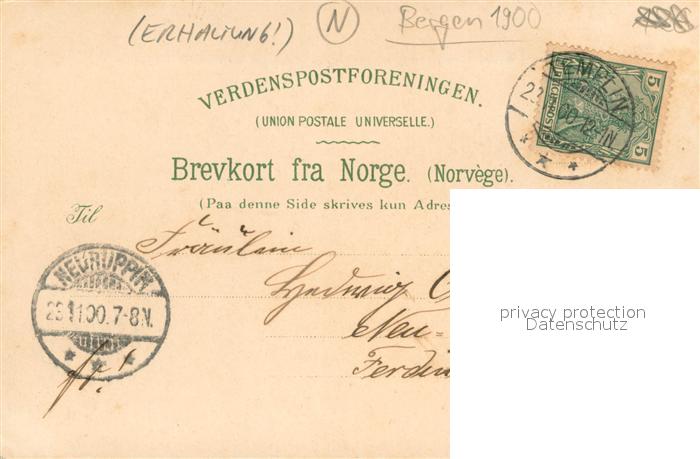 (ERHALTUNG!) N Bergen 1900
VERDENSPOSTFORENINGEN.
(UNION POSTALE UNIVERSELLE.)
Brevkort fra Norge. (Norvège).
(Paa denne Side skrives kun Adres
Til
Fräulein
Hedwig
Neu=
Ferdin
NEURUPPIN
11.00.7-8N.
fr.!
TEMPLIN
00.12-1N
5
5
REICHSPOST
privacy protection
Datenschutz